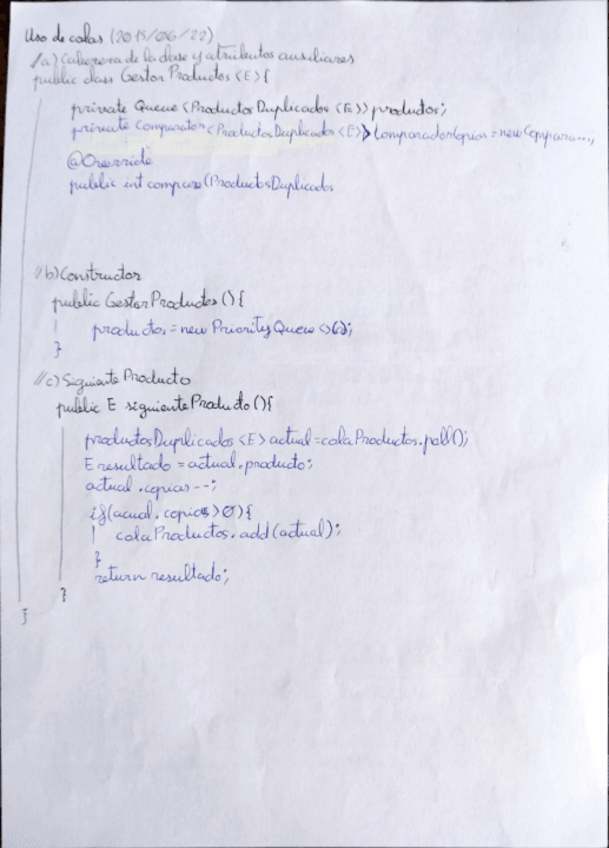 Uso de colas (2015/06/22)
//a) Cabecera de la clase y atributos auxiliares
public class Gestor Productos <E>{
private Queue <ProductosDuplicados <E>> productos;
private Comparator <ProductosDuplicados <E>> Comparadorcopias = new Compara...,
@Override
public int compare(ProductosDuplicados
//b) Constructor
public GestorProductos (){
productos = new PriorityQueue <>();
}
//c) Siguiente Producto
public E siguienteProducto (){
productosDuplicados <E> actual = colaProductos.poll();
E resultado = actual.producto;
actual.copias --;
if(acual.copias >0){
colaProductos.add(actual);
}
return resultado;
}
}